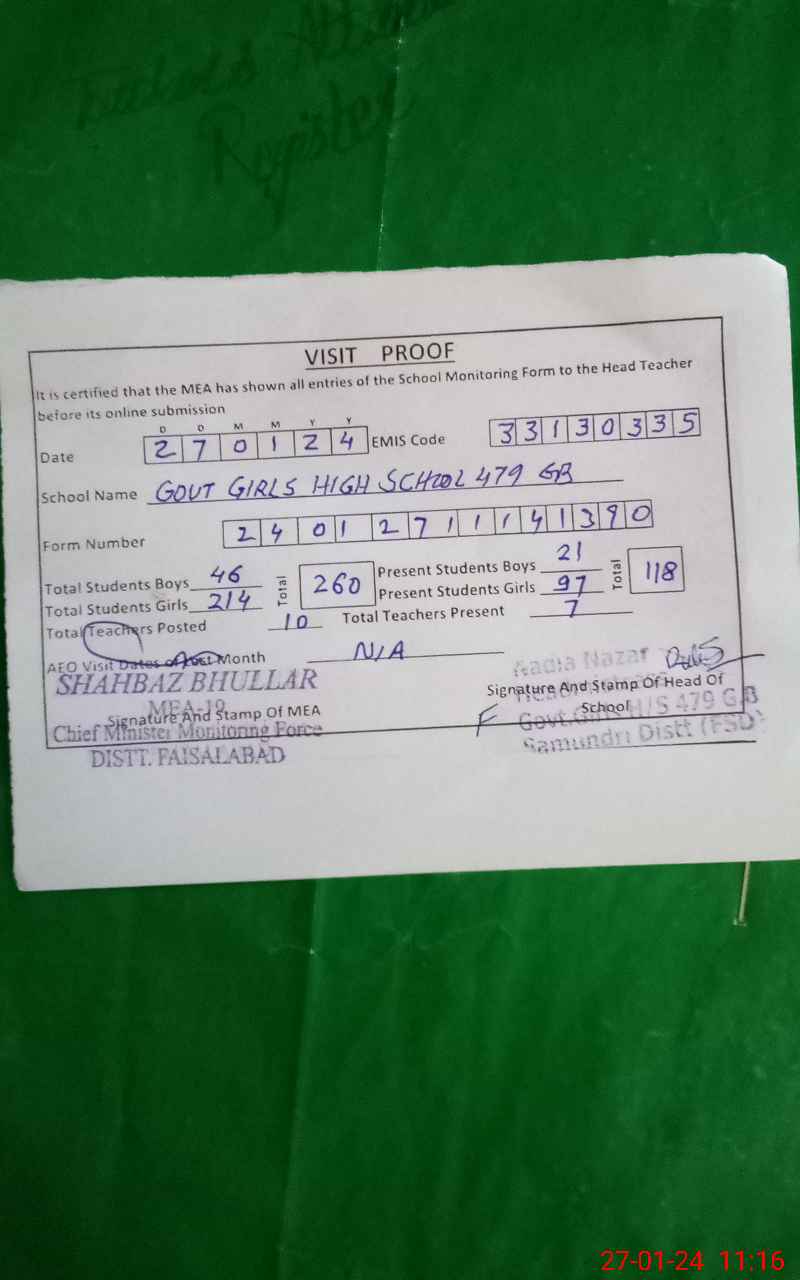 Register
VISIT PROOF
It is certified that the MEA has shown all entries of the School Monitoring Form to the Head Teacher
before its online submission
D D M M Y Y
Date 2 7 0 1 2 4 EMIS Code 3 3 1 3 0 3 3 5
School Name GOVT GIRLS HIGH SCHOOL 479 GB
Form Number 2 4 0 1 2 7 1 1 1 4 1 3 9 0
Total Students Boys 46 Total 260 Present Students Boys 21 Total 118
Total Students Girls 214 Present Students Girls 97
Total Teachers Posted 10 Total Teachers Present 7
AEO Visit Dates of Last Month N/A
SHAHBAZ BHULLAR
MEA-19
Signature And Stamp Of MEA
Chief Minister Monitoring Force
DISTT. FAISALABAD
Nazar
Signature And Stamp Of Head Of
School
Govt. Girls H/S 479 G.B
Samundri Distt (FSD)
27-01-24 11:16